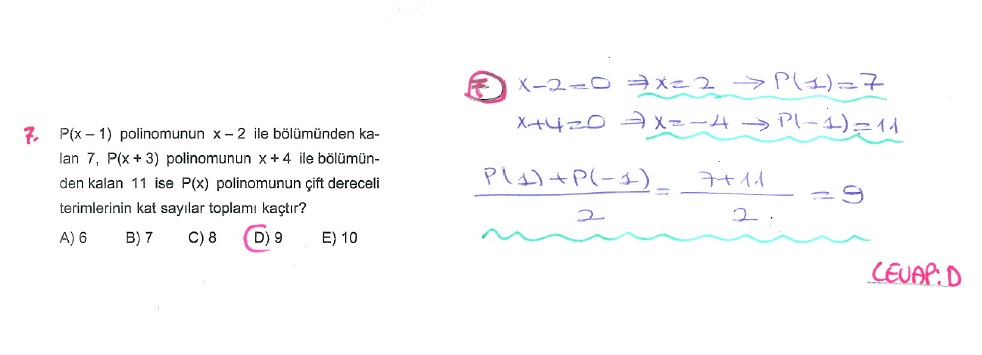 7. P(x – 1) polinomunun x – 2 ile bölümünden ka-
lan 7, P(x + 3) polinomunun x + 4 ile bölümün-
den kalan 11 ise P(x) polinomunun çift dereceli
terimlerinin kat sayılar toplamı kaçtır?
A) 6 B) 7 C) 8 D) 9 E) 10
7 x-2=0 ⇒ x=2 → P(1)=7
x+4=0 ⇒ x=-4 → P(-1)=11
P(1)+P(-1)/2 = 7+11/2 = 9
CEVAP: D